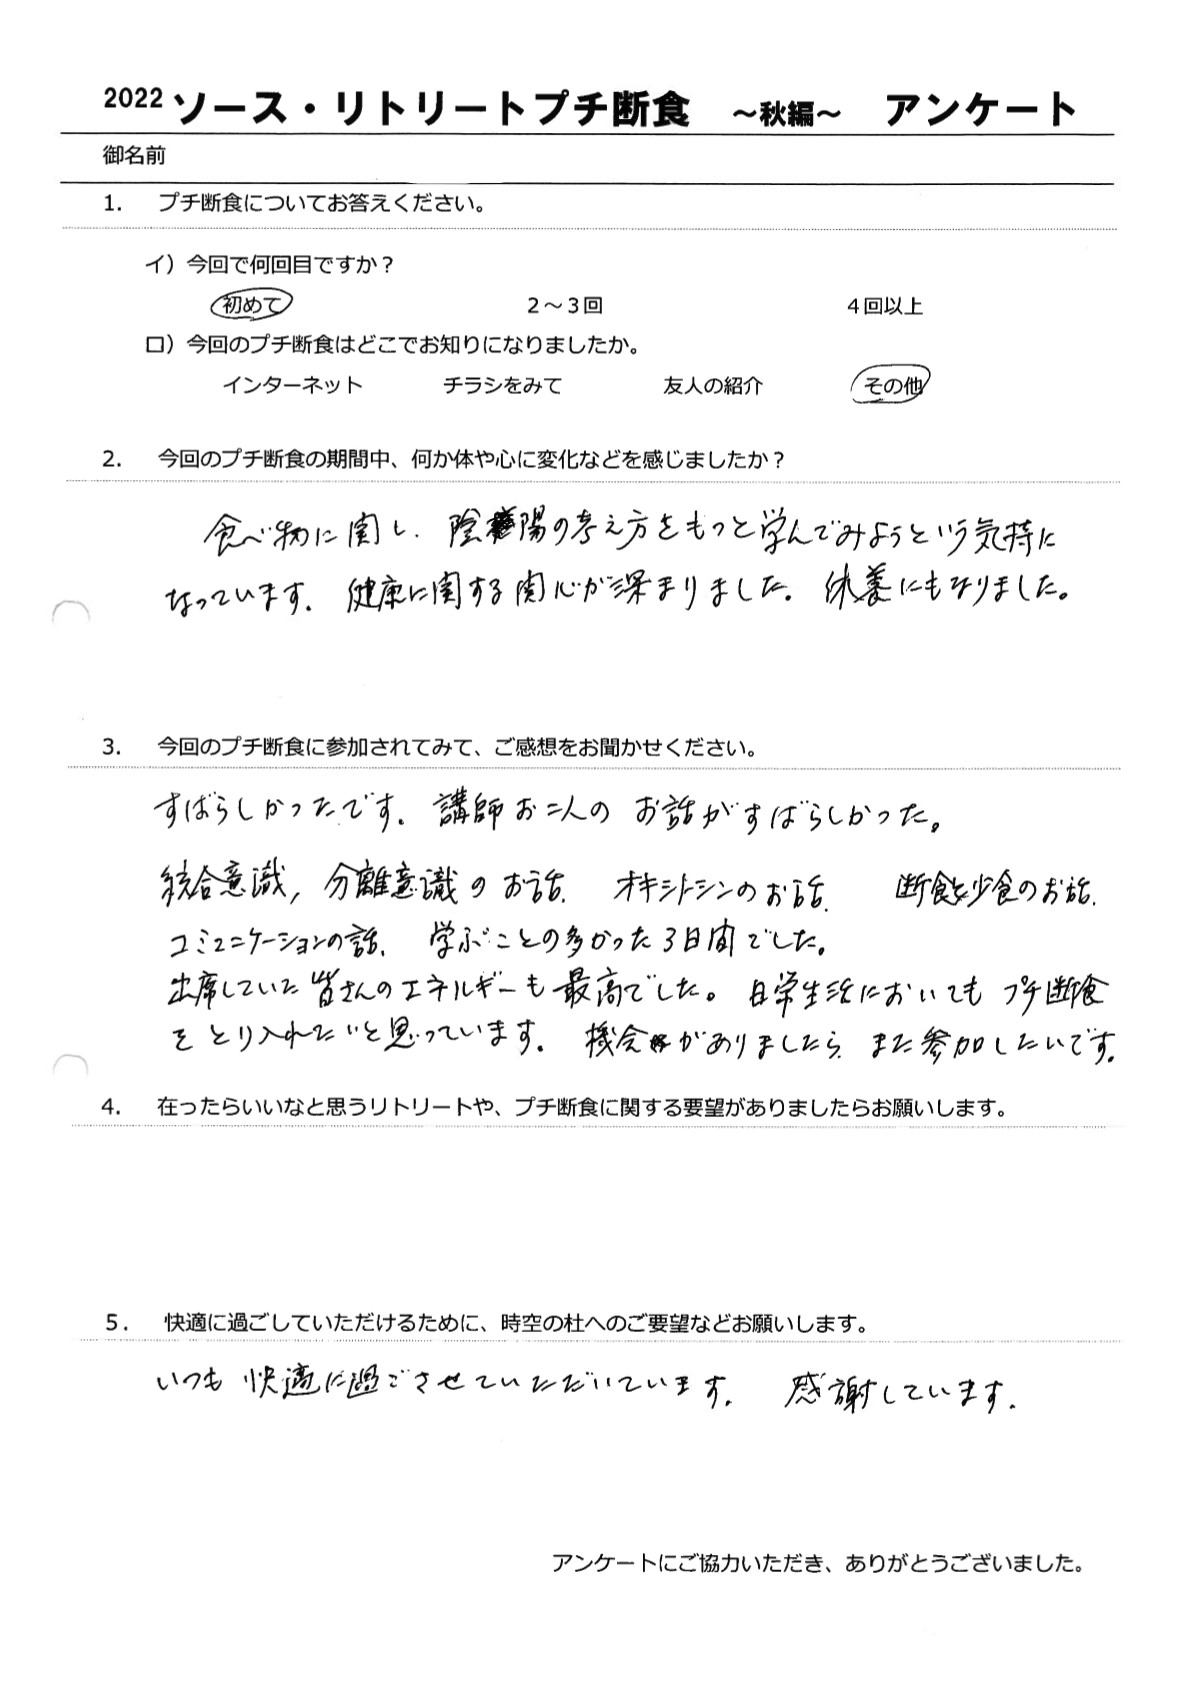 2022 ソース・リトリートプチ断食　～秋編～　アンケート
御名前
1.　プチ断食についてお答えください。
イ）今回で何回目ですか？
初めて　２～３回　４回以上
ロ）今回のプチ断食はどこでお知りになりましたか。
インターネット　チラシをみて　友人の紹介　その他
2.　今回のプチ断食の期間中、何か体や心に変化などを感じましたか？
食べ物に関し、陰陽の考え方をもっと学んでみようという気持に
なっています。健康に関する関心が深まりました。休養にもなりました。
3.　今回のプチ断食に参加されてみて、ご感想をお聞かせください。
すばらしかったです。講師お二人の お話がすばらしかった。
統合意識, 分離意識のお話、オキシトシンのお話、断食と少食のお話、
コミュニケーションの話、学ぶことの多かった3日間でした。
出席していた皆さんのエネルギーも最高でした。日常生活においても プチ断食
をとり入れたいと思っています。機会がありましたら、また参加したいです。
4.　在ったらいいなと思うリトリートや、プチ断食に関する要望がありましたらお願いします。
５.　快適に過ごしていただけるために、時空の杜へのご要望などお願いします。
いつも快適に過ごさせていただいています。感謝しています。
アンケートにご協力いただき、ありがとうございました。